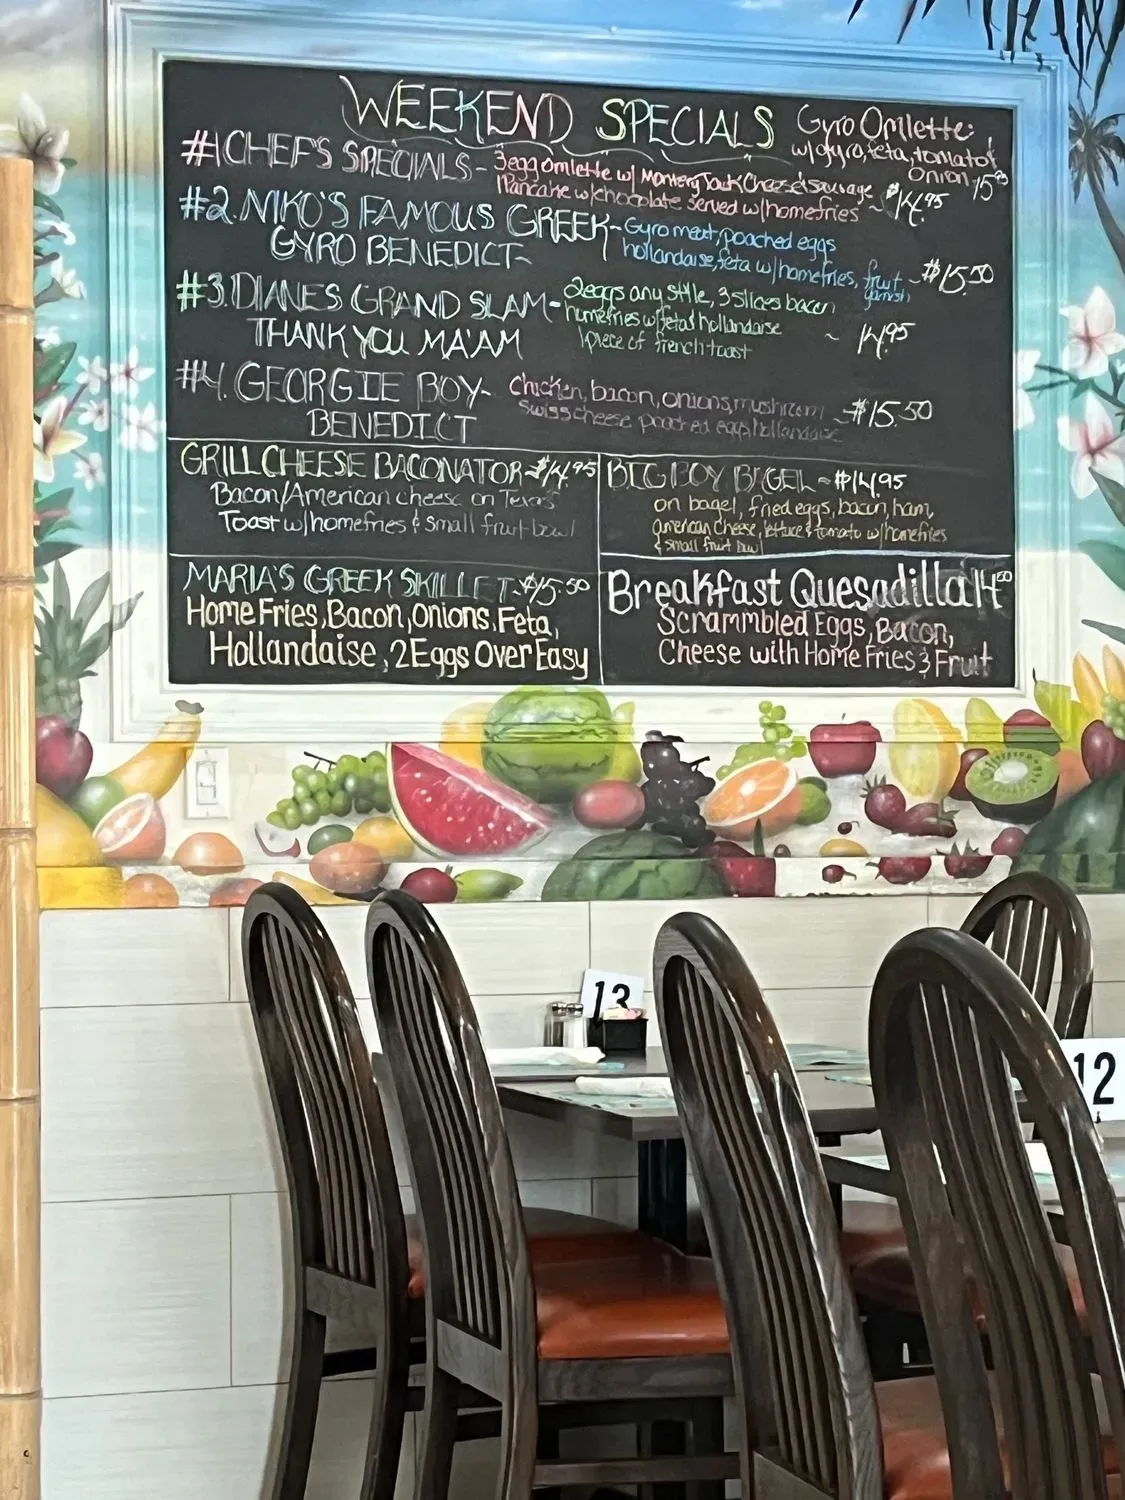 WEEKEND SPECIALS
Gyro Omlette:
w/gyro, feta, tomato &
onion 15⁹⁵
#1 CHEF'S SPECIALS - 3 egg Omlette w/ Montery Jack Cheese & Sausage
1 Pancake w/chocolate served w/homefries ~ $14.95
#2. NIKO'S FAMOUS GREEK - Gyro meat, poached eggs
GYRO BENEDICT ~ hollandaise, feta w/homefries, fruit ~ $15.50
garnish
#3. DIANE'S GRAND SLAM - 2 eggs any style, 3 slices bacon
homefries w/feta & hollandaise
THANK YOU MA'AM 1 piece of french toast ~ 14.95
#4. GEORGIE BOY - Chicken, bacon, onions, mushroom
BENEDICT Swiss cheese poached eggs, hollandaise ~ #15.50
GRILL CHEESE BACONATOR ~ $14.95
Bacon/American cheese on Texas
Toast w/homefries & small fruit bowl
BIG BOY BAGEL ~ $14.95
on bagel, fried eggs, bacon, ham,
american cheese, lettuce & tomato w/homefries
& small fruit bowl
MARIA'S GREEK SKILLET ~ $15.50
Home Fries, Bacon, Onions, Feta,
Hollandaise, 2 Eggs Over Easy
Breakfast Quesadilla 14⁰⁰
Scrammbled Eggs, Bacon,
Cheese with Home Fries & Fruit
13
12